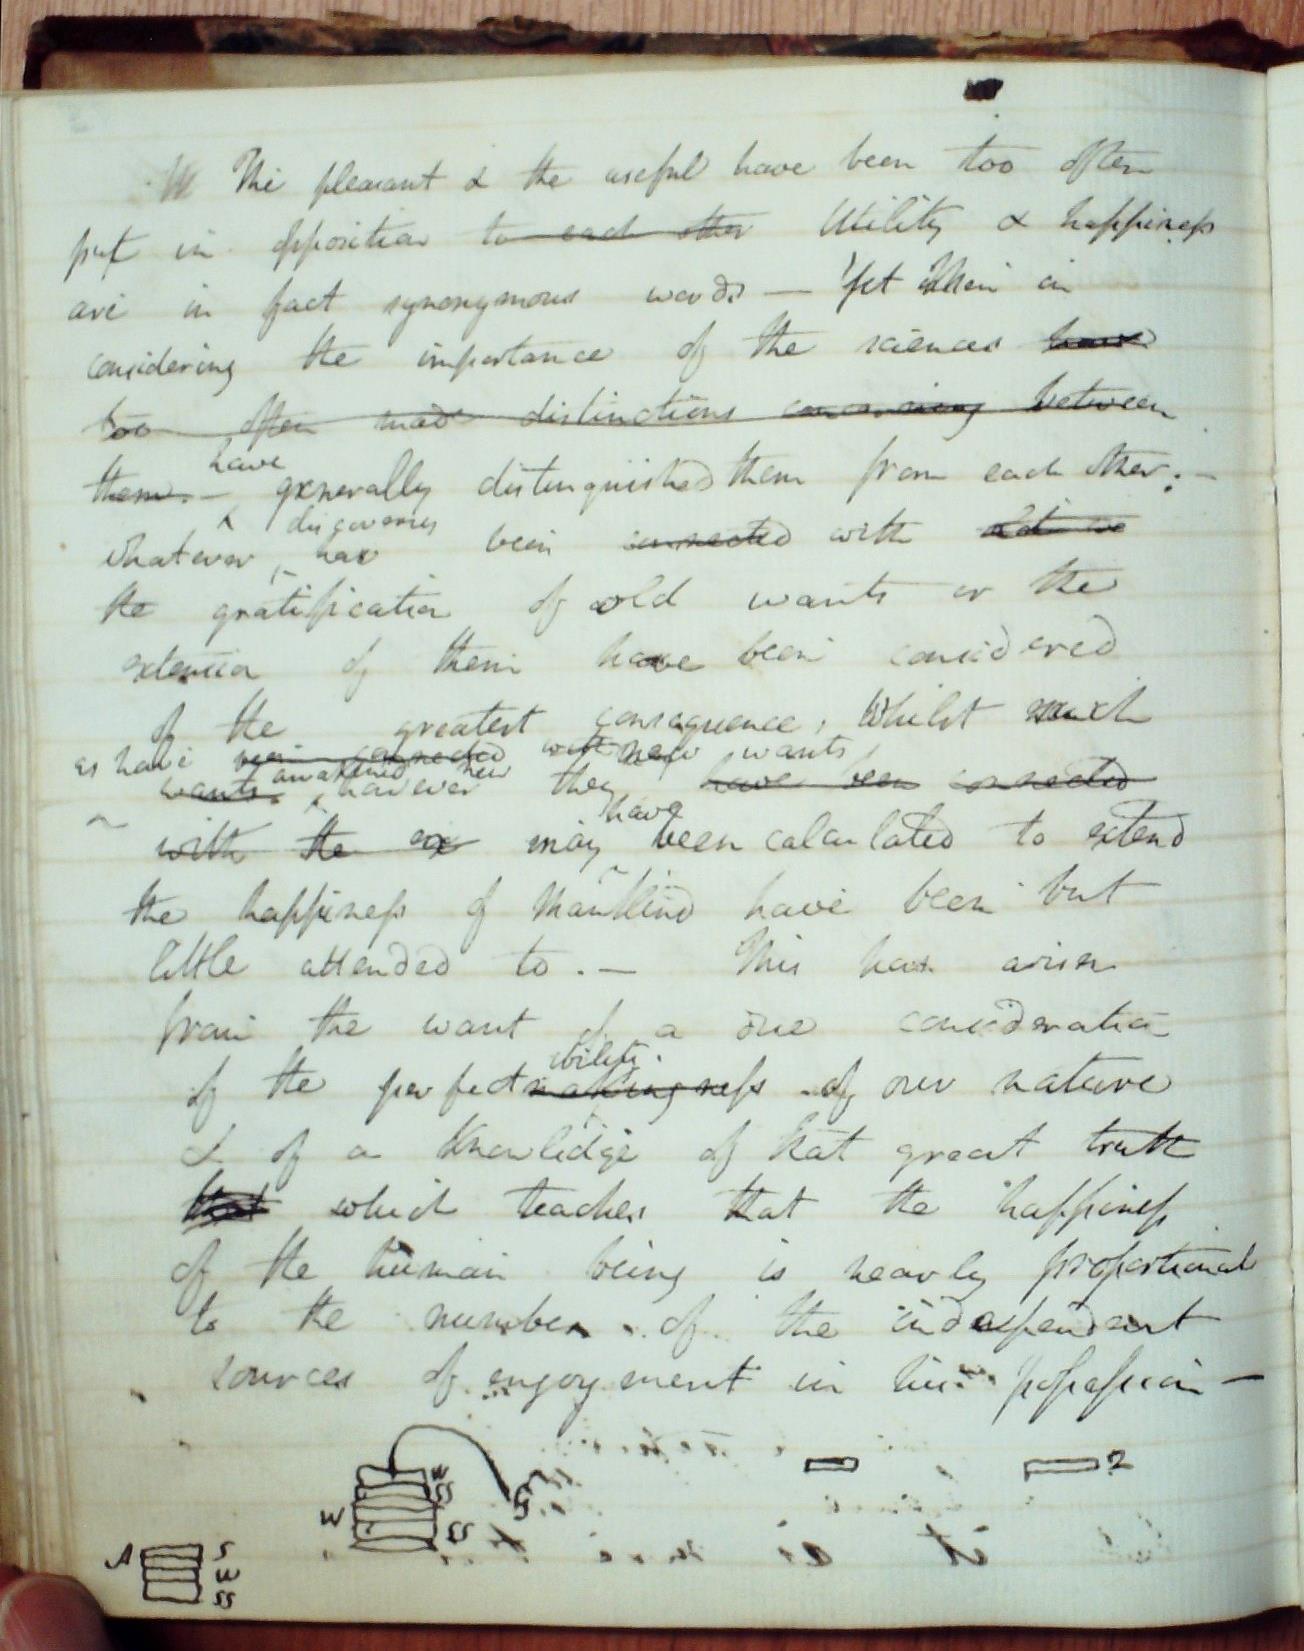 The pleasant & the useful have been too often
put in opposition to each other Utility & happiness
are in fact synonymous words — Yet Men in
considering the importance of the sciences have
too often made distinctions concerning between
have
them. — generally distinguished them from each other: —
discoveries
whatever has been connected with old we
the gratification of old wants or the
extension of them have been considered
of the greatest consequence, Whilst such
as have been connected with new wants
wants. awakened new
however they have been connected
have
with the ex may been calculated to extend
the happiness of Mankind have been but
little attended to. — This has arisen
from the want of a due consideration
ibility.
of the perfectness of our nature
& of a knowledge of that great truth
that which teaches that the happiness
of the human being is nearly proportional
to the number of the independent
sources of enjoyment in his possession —
W
SS
W
SS
2
A
S
W
SS